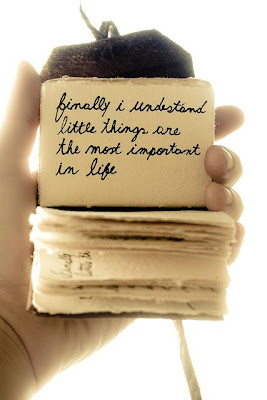 finally i undestand
little things are
the most important
in life
finally